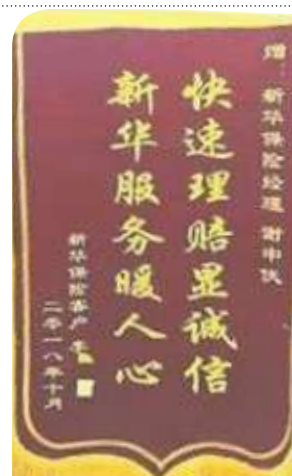 赠:新华保险经理 谢中伙
快速理赔显诚信
新华服务暖人心
新华保险客户 李
二零一八年十月